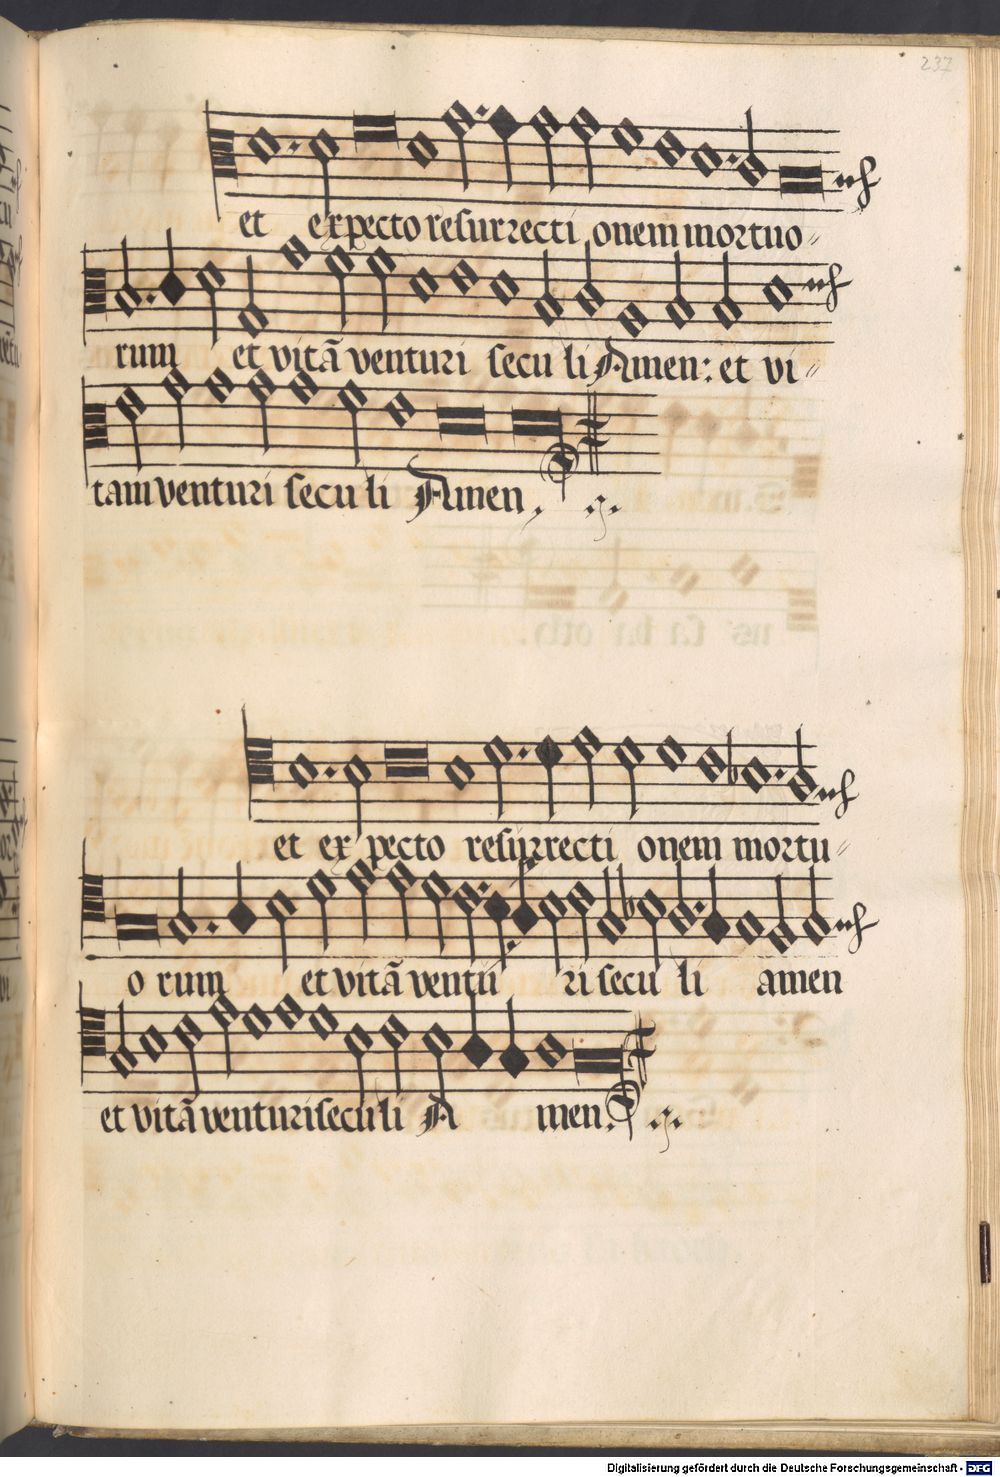 237
et expecto resurrecti onem mortuo〃
rum et vitã venturi secu li Amen: et vi〃
tam venturi secu li Amen.
et ex pecto resurrecti onem mortu〃
o rum et vitã ventu ri secu li amen
et vitã venturi seculi A men.
Digitalisierung gefördert durch die Deutsche Forschungsgemeinschaft - DFG